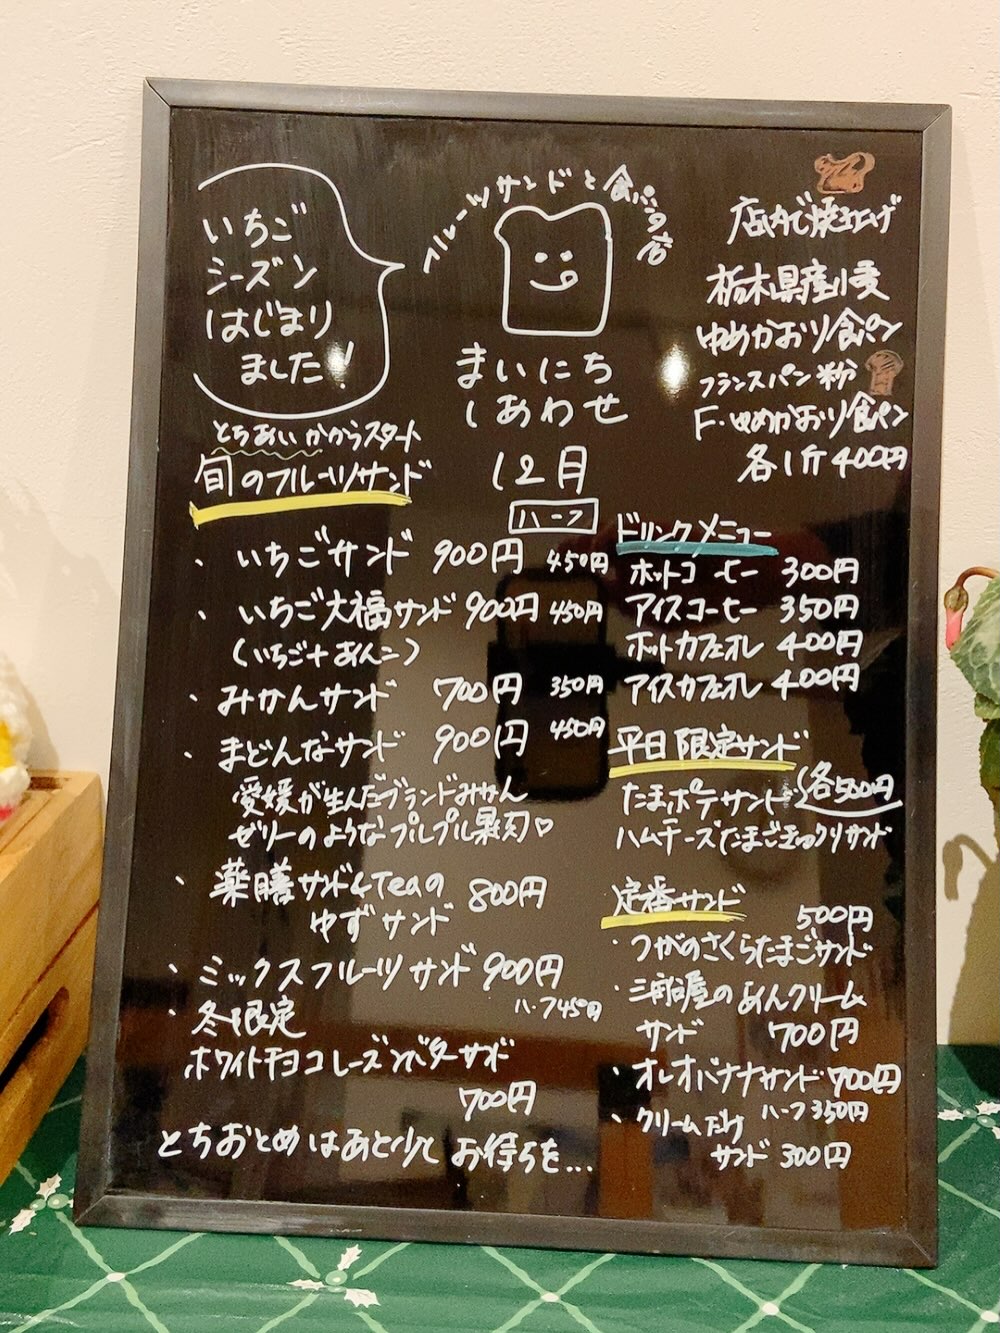 いちご
シーズン
はじまり
ました!
フルーツサンドと食パンの店
まいにち
しあわせ
12月
店内で焼き上げ
栃木県産小麦
ゆめかおり食パン
フランスパン粉
F・ゆめかおり食パン
各1斤400円
とちあいかからスタート
旬のフルーツサンド
ハーフ
・いちごサンド 900円 450円
・いちご大福サンド 900円 450円
(いちご+あんこ)
・みかんサンド 700円 350円
・まどんなサンド 900円 450円
愛媛が生んだブランドみかん
ゼリーのようなプルプル果肉♡
・薬膳サンド&Teaの
ゆずサンド 800円
・ミックスフルーツサンド 900円
ハーフ450円
・冬限定
ホワイトチョコレーズンバターサンド
700円
とちおとめはあと少しお待ちを...
ドリンクメニュー
ホットコーヒー 300円
アイスコーヒー 350円
ホットカフェオレ 400円
アイスカフェオレ 400円
平日限定サンド
各500円
たまポテサンド
ハムチーズたまごきゅうりサンド
定番サンド
500円
・つがのさくらたまごサンド
・三桝屋のあんクリーム
サンド 700円
・オレオバナナサンド 700円
ハーフ350円
・クリームだけ
サンド 300円